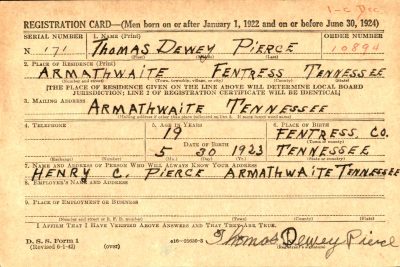 1-C Dec
REGISTRATION CARD—(Men born on or after January 1, 1922 and on or before June 30, 1924)
SERIAL NUMBER 1. NAME (Print) ORDER NUMBER
N 171 THOMAS DEWEY PIERCE 10894
(First) (Middle) (Last)
2. PLACE OF RESIDENCE (Print)
ARMATHWAITE FENTRESS TENNESSEE
(Number and street) (Town, township, village, or city) (County) (State)
[THE PLACE OF RESIDENCE GIVEN ON THE LINE ABOVE WILL DETERMINE LOCAL BOARD
JURISDICTION; LINE 2 OF REGISTRATION CERTIFICATE WILL BE IDENTICAL]
3. MAILING ADDRESS
ARMATHWAITE TENNESSEE
[Mailing address if other than place indicated on line 2. If same insert word same]
4. TELEPHONE 5. AGE IN YEARS 6. PLACE OF BIRTH
19 FENTRESS CO.
DATE OF BIRTH (Town or county)
5 30 1923 TENNESSEE
(Exchange) (Number) (Mo.) (Day) (Yr.) (State or country)
7. NAME AND ADDRESS OF PERSON WHO WILL ALWAYS KNOW YOUR ADDRESS
HENRY C. PIERCE ARMATHWAITE TENNESSEE
8. EMPLOYER'S NAME AND ADDRESS
9. PLACE OF EMPLOYMENT OR BUSINESS
(Number and street or R. F. D. number) (Town) (County) (State)
I AFFIRM THAT I HAVE VERIFIED ABOVE ANSWERS AND THAT THEY ARE TRUE.
D. S. S. Form 1 (over) Thomas Dewey Pierce
(Revised 6-1-42) (Registrant's signature)